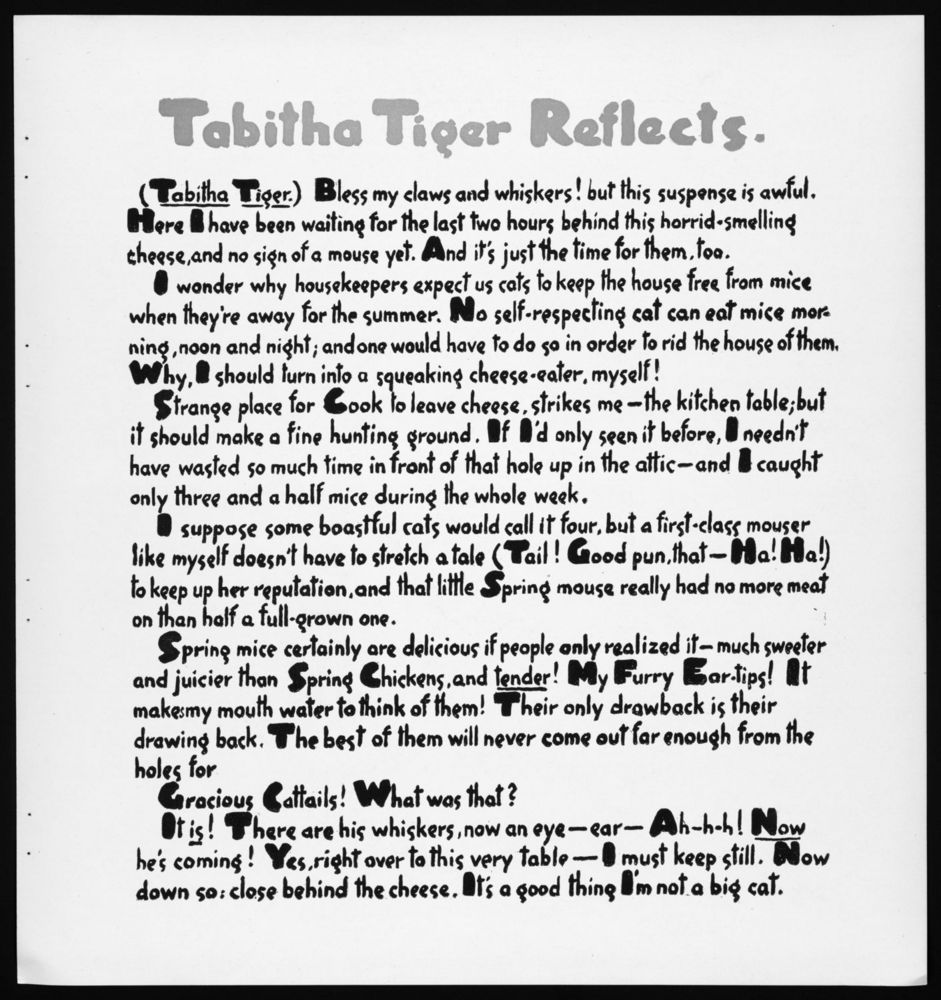 Tabitha Tiger Reflects.
(Tabitha Tiger.) Bless my claws and whiskers! but this suspense is awful.
Here I have been waiting for the last two hours behind this horrid-smelling
cheese, and no sign of a mouse yet. And it's just the time for them, too.
I wonder why housekeepers expect us cats to keep the house free from mice
when they're away for the summer. No self-respecting cat can eat mice mor-
ning, noon and night; and one would have to do so in order to rid the house of them.
Why, I should turn into a squeaking cheese-eater, myself!
Strange place for Cook to leave cheese, strikes me—the kitchen table; but
it should make a fine hunting ground. If I'd only seen it before, I needn't
have wasted so much time in front of that hole up in the attic—and I caught
only three and a half mice during the whole week.
I suppose some boastful cats would call it four, but a first-class mouser
like myself doesn't have to stretch a tale (Tail! Good pun, that—Ha! Ha!)
to keep up her reputation, and that little Spring mouse really had no more meat
on than half a full-grown one.
Spring mice certainly are delicious if people only realized it—much sweeter
and juicier than Spring Chickens, and tender! My Furry Ear-tips! It
makes my mouth water to think of them! Their only drawback is their
drawing back. The best of them will never come out far enough from the
holes for
Gracious Cattails! What was that?
It is! There are his whiskers, now an eye—ear—Ah-h-h! Now
he's coming! Yes, right over to this very table—I must keep still. Now
down so: close behind the cheese. It's a good thing I'm not a big cat.